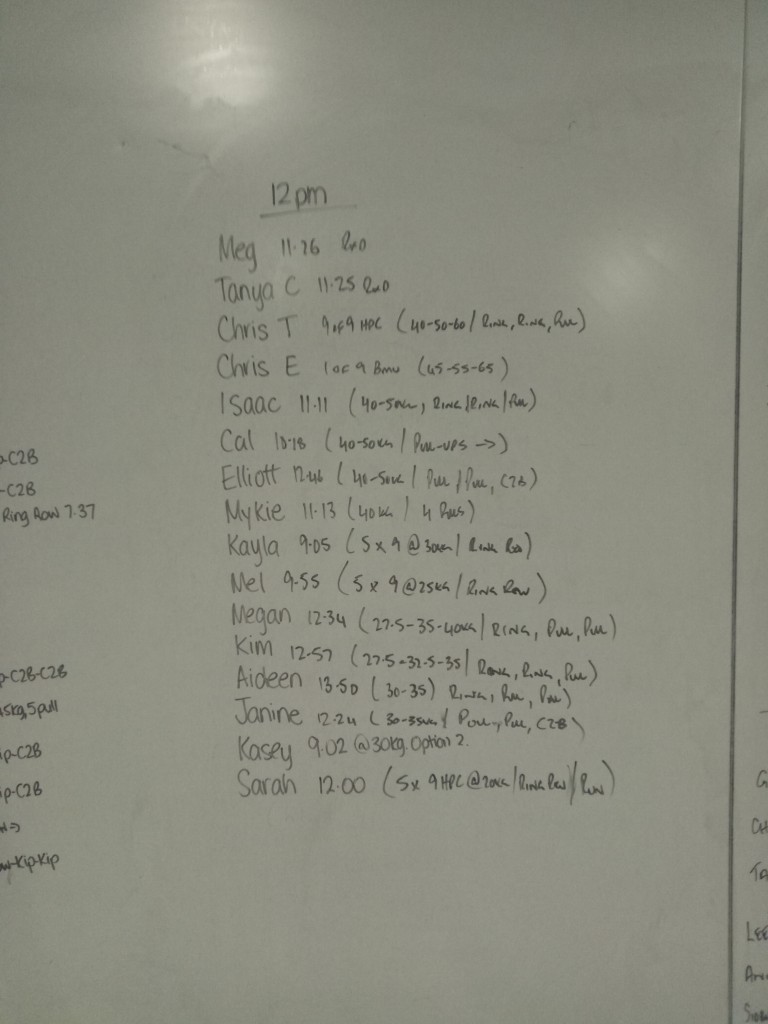 12pm
Meg 11.26 RxD
Tanya C 11.25 RxD
Chris T 9 of 9 HPC (40-50-60/ RING, RING, Pull)
Chris E 1 of 9 BMU (45-55-65)
Isaac 11.11 (40-50KG, RING/RING/Pull)
Cal 10.18 (40-50KG / Pull-ups →)
Elliott 12.46 (40-50KG / Pull / Pull, C2B)
Mykie 11.13 (40KG / 4
Kayla 9.05 (5 x 9 @ 30KG / RING Row)
Mel 9.55 (5 x 9 @ 25KG / RING Row)
Megan 12.34 (27.5-35-40KG / RING, Pull, Pull)
Kim 12.57 (27.5-32.5-35 / RING, RING, Pull)
Aideen 13.50 (30-35) RING, Pull, Pull)
Janine 12.24 (30-35KG / Pull, Pull, C2B)
Kasey 9.02 @30kg. Option 2.
Sarah 12.00 (5x 9 HPC @ 20KG / RING Row / Run)
-C2B
-C2B
Ring Row 7.37
-C2B-C2B
5kg, 5pull
ip-C2B
ip-C2B
-Kip-Kip
G
CH
TA
LEE